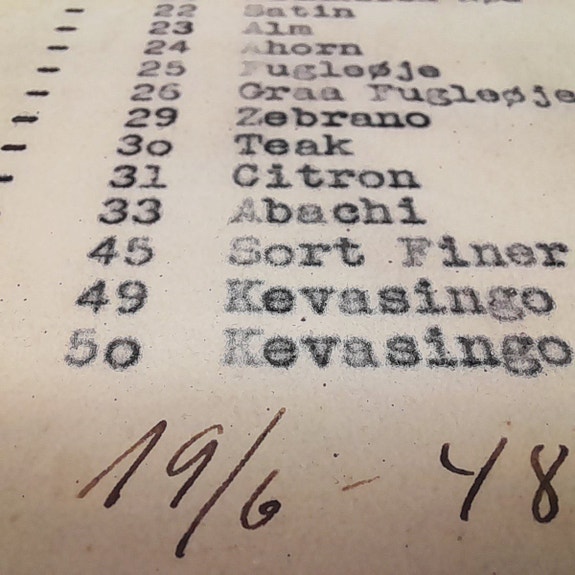 - 22 Satin
- 23 Alm
- 24 Ahorn
- 25 Fugleøje
- 26 Graa Fugleøje
- 29 Zebrano
- 3o Teak
- 31 Citron
33 Abachi
45 Sort Finer
49 Kevasingo
5o Kevasingo
19/6 - 48